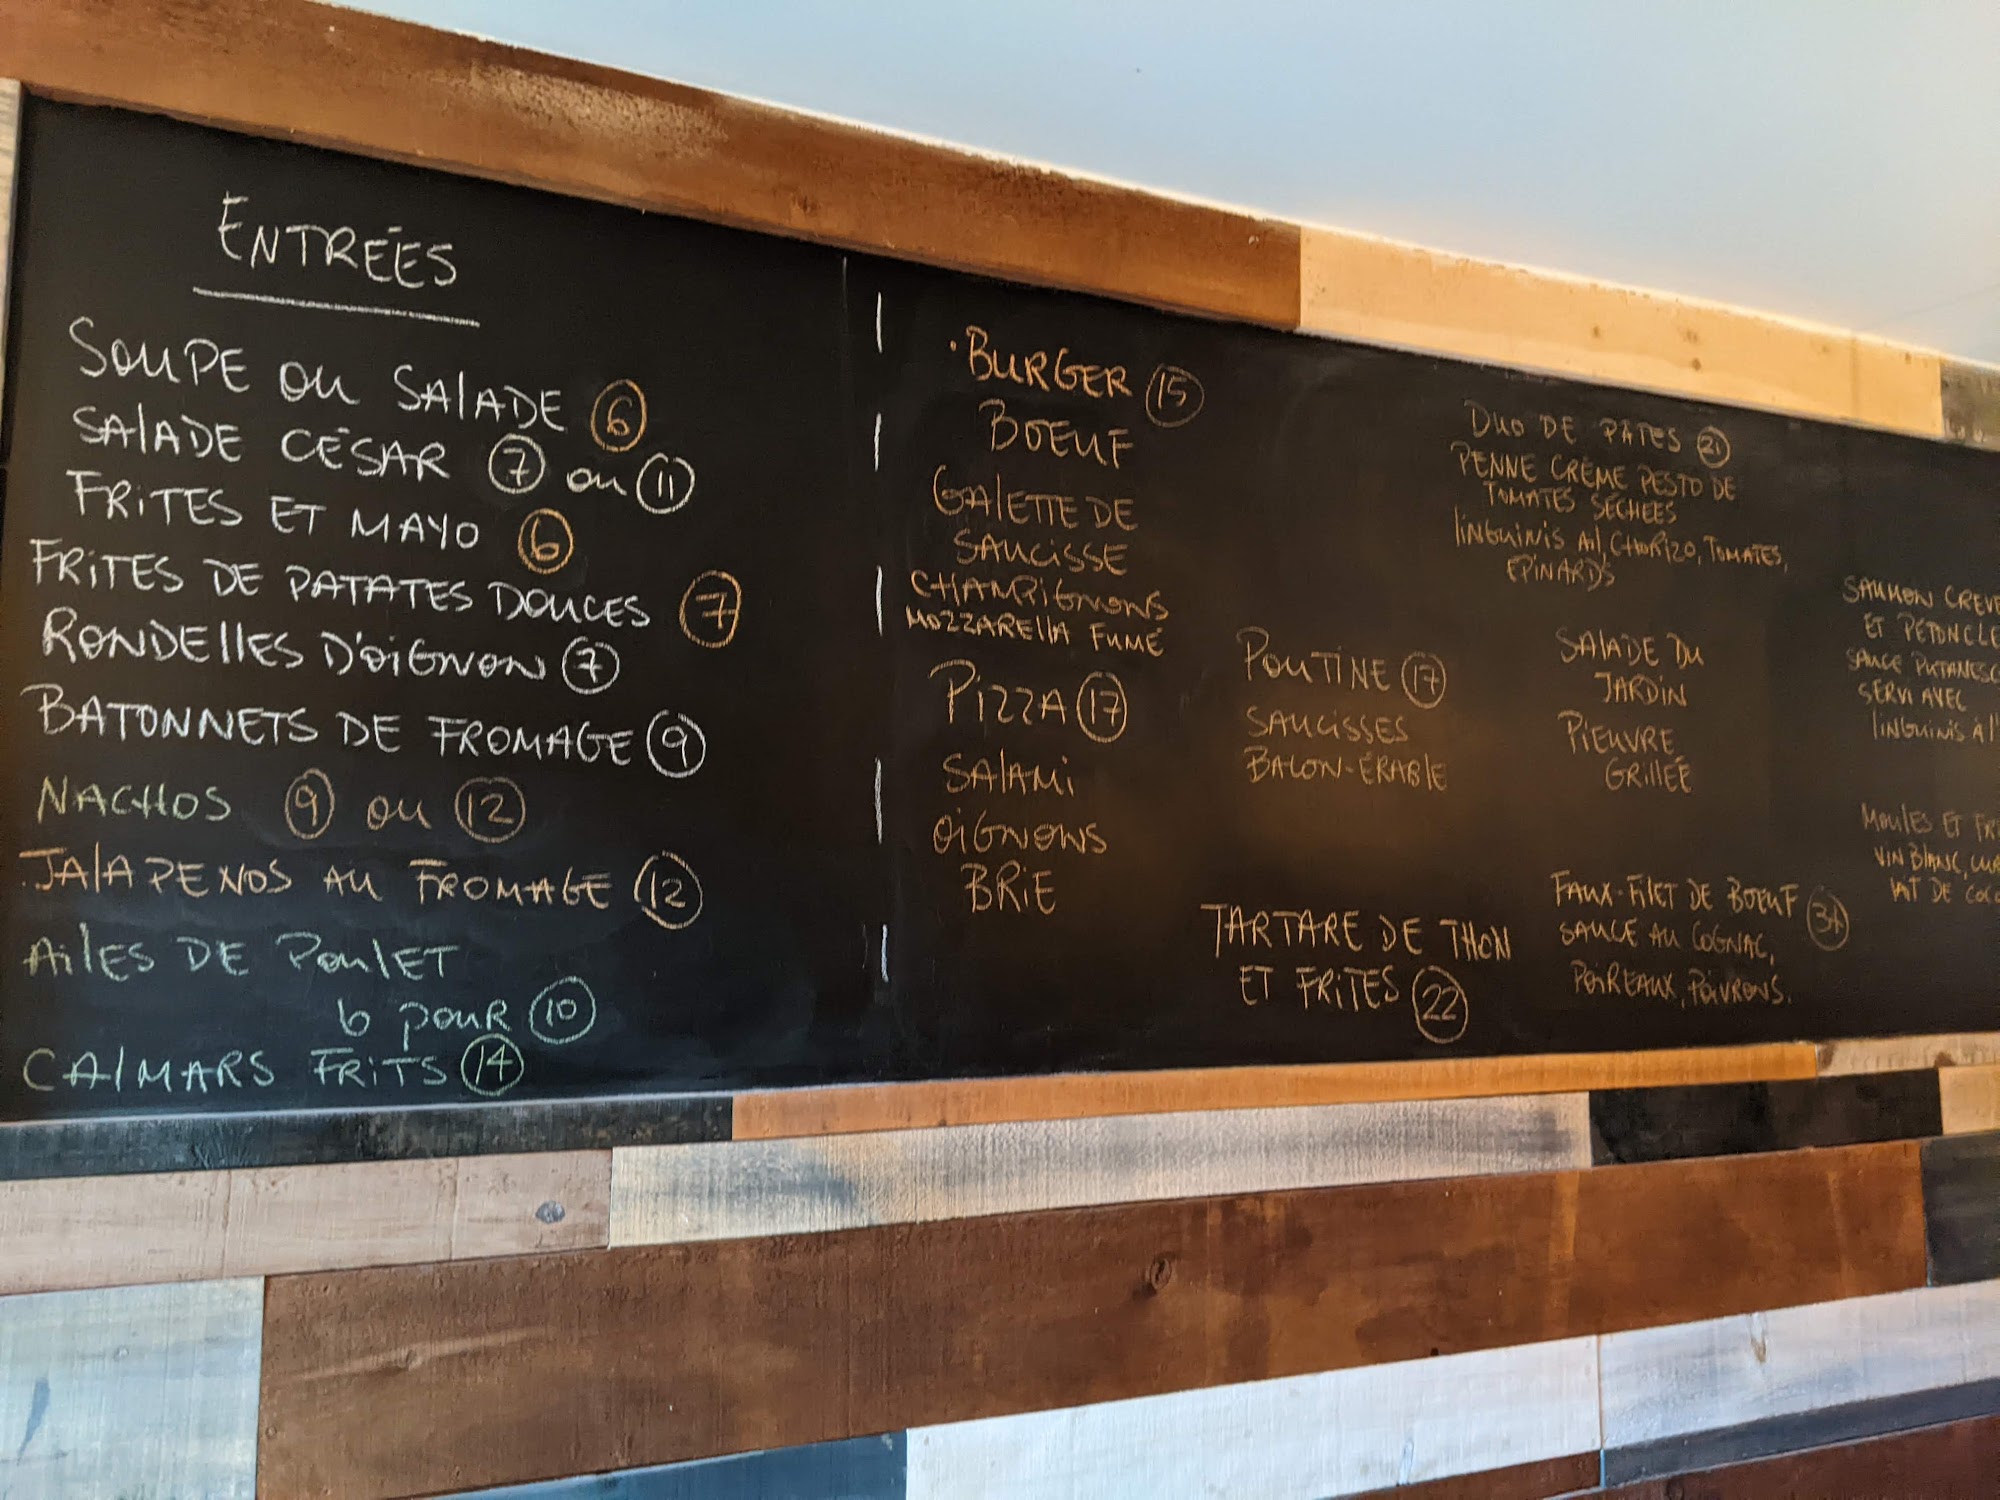 ENTRÉES
SOUPE OU SALADE 6
SALADE CÉSAR 7 OU 11
FRITES ET MAYO 6
FRITES DE PATATES DOUCES 7
RONDELLES D'OIGNON 7
BATONNETS DE FROMAGE 9
NACHOS 9 OU 12
JALAPENOS AU FROMAGE 12
AILES DE POULET
6 POUR 10
CALMARS FRITS 14
·BURGER 15
BOEUF
GALETTE DE
SAUCISSE
CHAMPIGNONS
MOZZARELLA FUMÉ
PIZZA 17
SALAMI
OIGNONS
BRIE
POUTINE 17
SAUCISSES
BACON-ÉRABLE
TARTARE DE THON
ET FRITES 22
DUO DE PÂTES 21
PENNE CRÈME PESTO DE
TOMATES SÉCHÉES
LINGUINIS AIL, CHORIZO, TOMATES,
EPINARDS
SALADE DU
JARDIN
PIEUVRE
GRILLÉE
FAUX-FILET DE BOEUF 34
SAUCE AU COGNAC,
POIREAUX, POIVRONS.
SAUMON CREVE
ET PÉTONCLE
SAUCE PUTANESC
SERVI AVEC
LINGUINIS À L'
MOULES ET FRI
VIN BLANC,
LAIT DE COCO